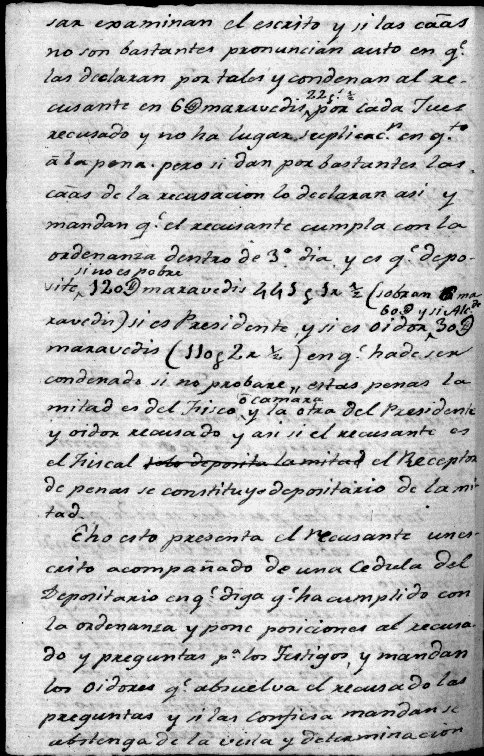 sar examinan el escrito y si las cãas
no son bastantes pronuncian auto en q.^e
las declaran por tales y condenan al re-
cusante en 6@ maravedis, por cada Juez
recusado y no ha lugar suplicac.^n en q.^to
ã la pena. pero si dan por bastantes las
cãas de la recusacion lo declaran asi y
mandan q.^e el recusante cumpla con la
ordenanza dentro de 3.^o dia y es q.^e depo-
si no es pobre
site, 120@ maravedis 441 1r ½ (sobran ma-
60@ y si Alc.^de
ravedis) si es Presidente, y si es oidor, 30@
maravedis (110 2r ½) en q.^e ha de ser
condenado si no probare,, estas penas la
ô camara
mitad es del Fisco, y la otra del Presidente
y oidor recusado y asi si el recusante es
el Fiscal solo deposita la mitad el Receptor
de penas se constituye depositario de la mi-
tad.
Eho esto presenta el recusante un es-
crito acompañado de una Cedula del
Depositario en q.^e diga q.^e ha cumplido con
la ordenanza y pone posiciones al recusa-
do y preguntas p.^a los Testigos, y mandan
los oidores q.^e absuelva el recusado las
preguntas y si las confiesa mandan se
abstenga de la vista y determinacion